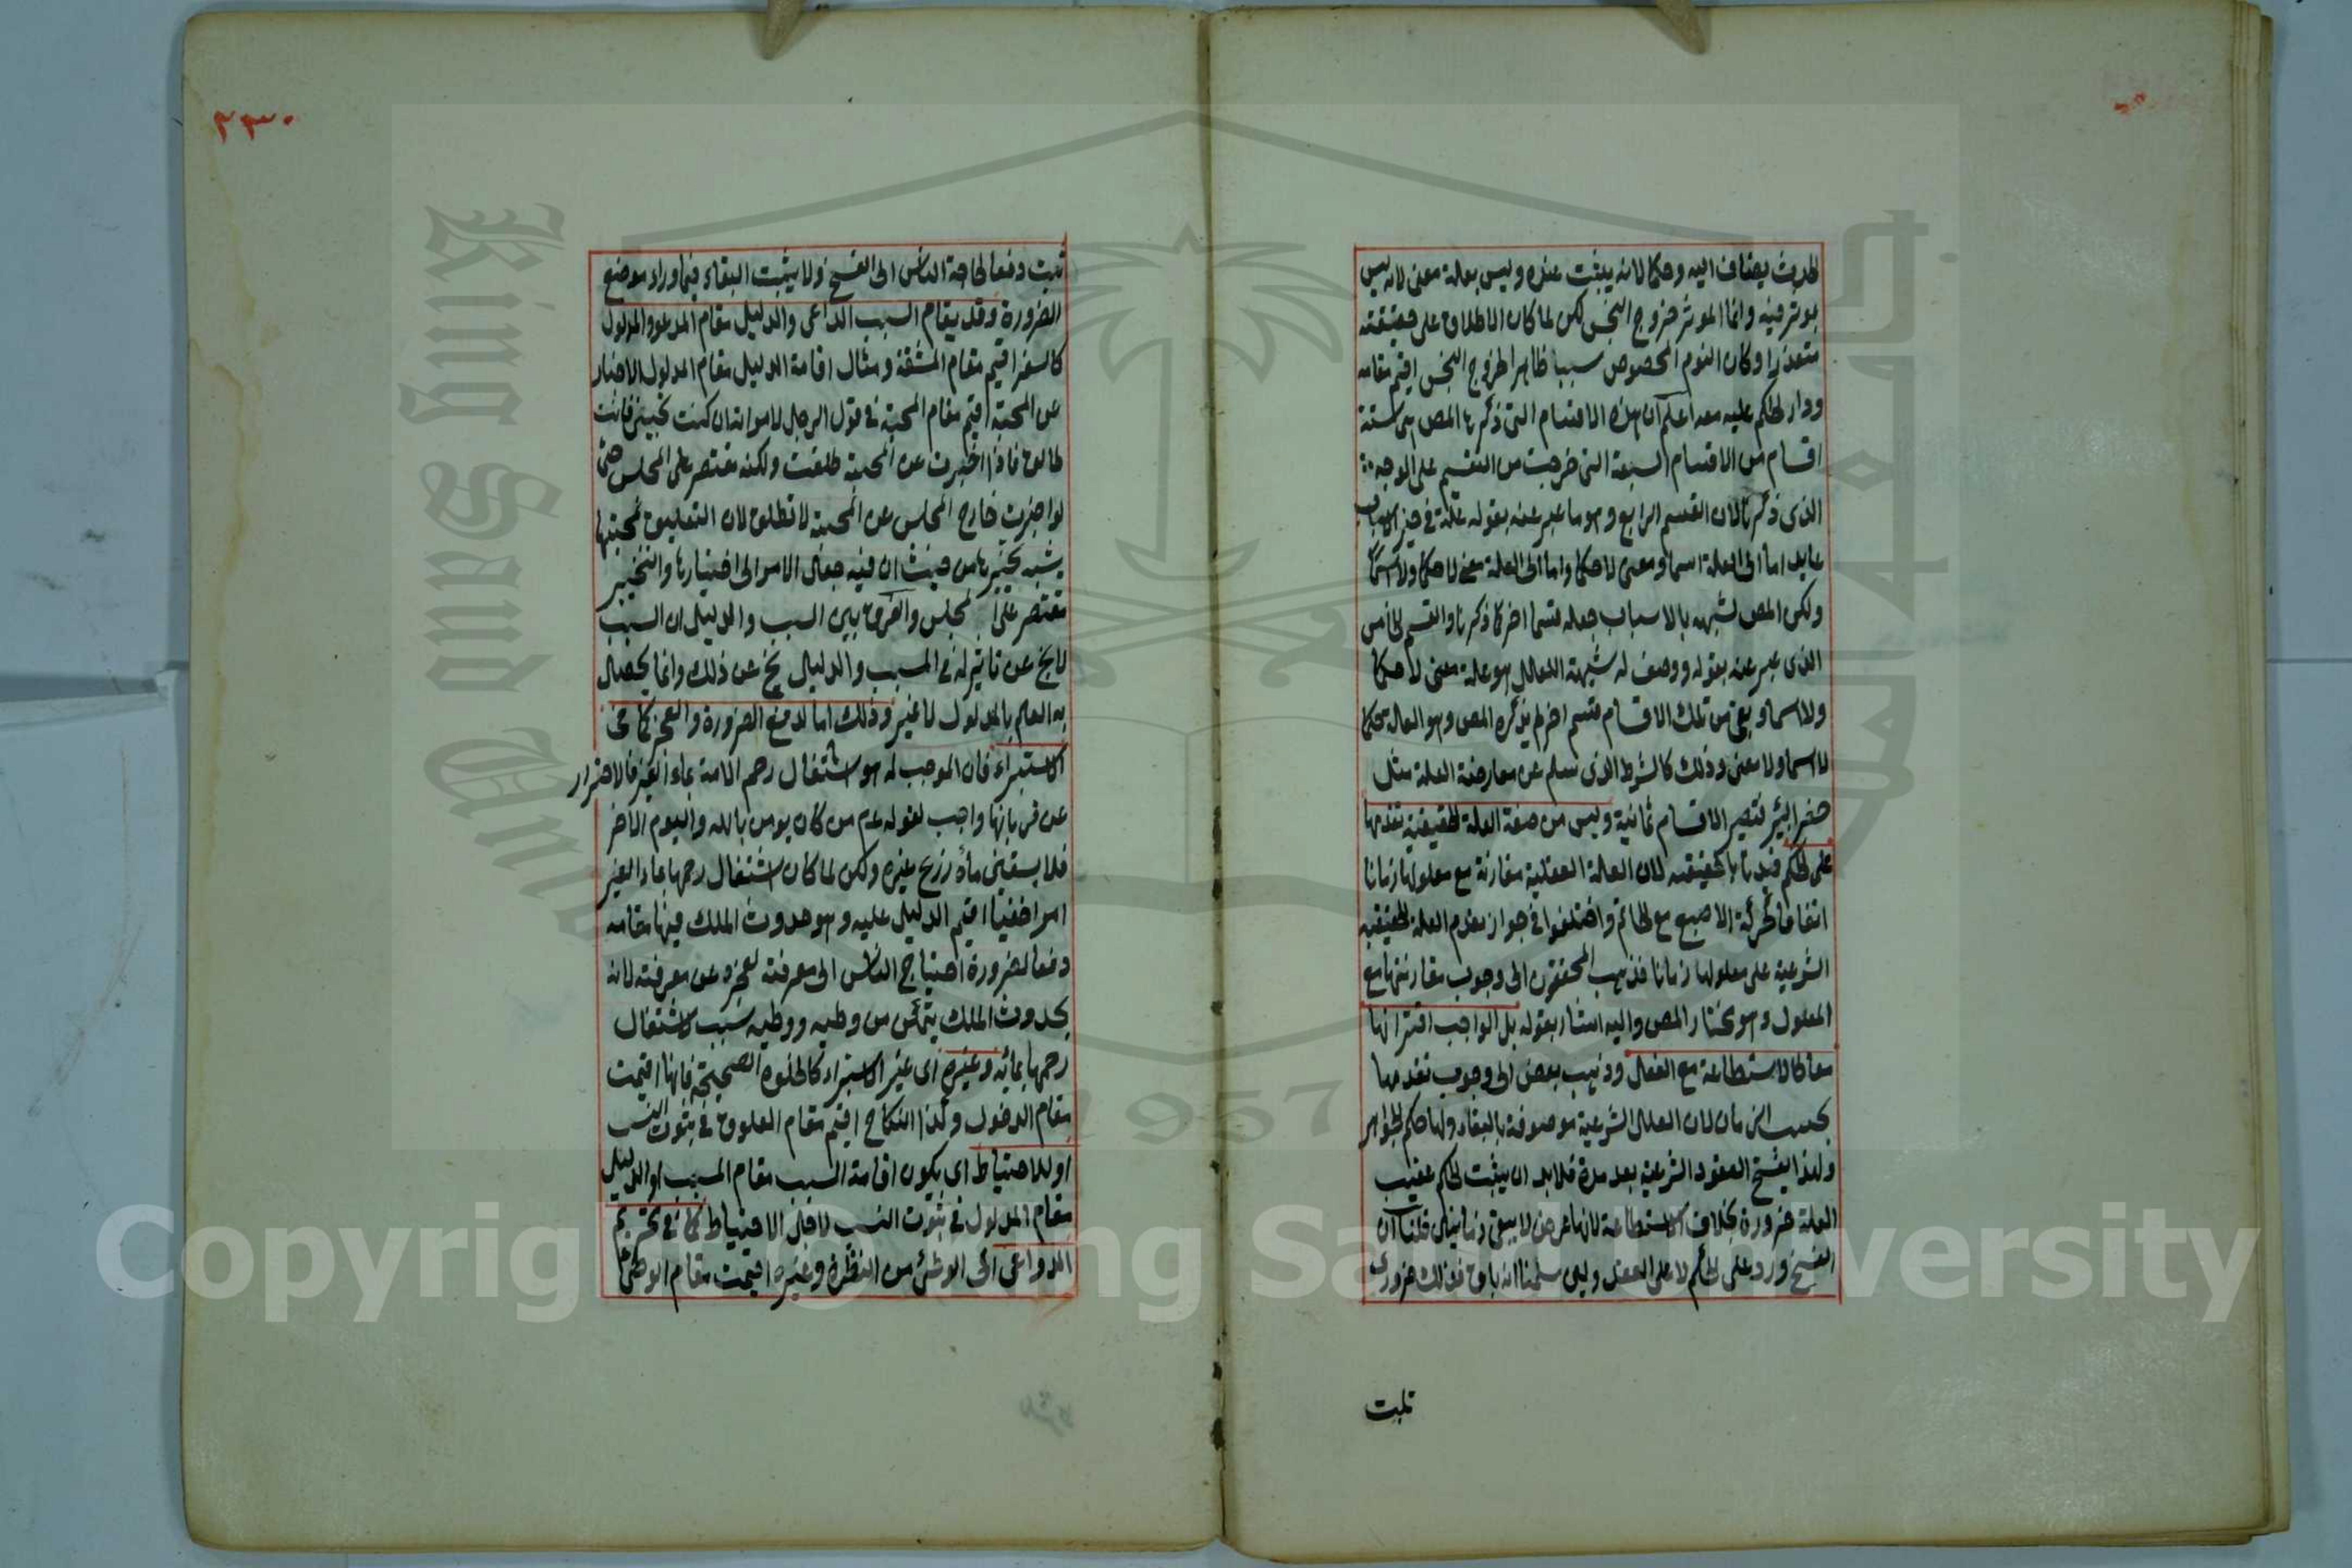 الحدث يضاف اليه وحكما لانه يثبت عنده وليس بعلة معنى لانه ليس
بموثر فيه وانما الموثر خروج النجس لكن لما كان الاطلاع على حقيقته
متعذرا وكان النوم المخصوص سببا ظاهرا لخروج النجس اقيم مقامه
ودار الحكم عليه معه اعلم ان هذه الاقسام التى ذكرها المص هى ستة
اقسام من الاقسام السبعة التى خرجت من التقسيم على الوجه
الذى ذكرنا لان القسم الرابع وهو ما عبر عنه بقوله علة فى حيز الاسباب
عايد اما الى العلة اسما ومعنى لا حكما واما الى العلة معنى لا حكما ولا اسما
ولكن المص لشبهه بالاسباب جعله قسما اخر كما ذكرنا والقسم الخامس
الذى عبر عنه بقوله ووصف له شبهة العلل هو علة معنى لا حكما
ولا اسما وبقى من تلك الاقسام قسم اخر لم يذكره المص وهو العلة حكما
لا اسما ولا معنى وذلك كالشرط الذى سلم عن معارضة العلة مثل
حفر البئر فتصير الاقسام ثمانية وليس من صفة العلة الحقيقية تقدمها
على الحكم قيدنا بالحقيقية لان العلة العقلية مقارنة مع معلولها زمانا
اتفاقا كحركة الاصبع مع الخاتم واختلفوا فى جواز تقدم العلة الحقيقية
الشرعية على معلولها زمانا فذهب المحققون الى وجوب مقارنتها مع
المعلول وهو مختار المص واليه اشار بقوله بل الواجب اقترانها
معا كالاستطاعة مع الفعل وذهب بعض الى وجوب تقدمها
بحسب الزمان لان العلل الشرعية موصوفة بالبقاء ولها حكم الجواهر
ولهذا يفسخ العقود الشرعية بعد مدة فلابد ان يثبت الحكم عقيب
العلة ضرورة بخلاف الاستطاعة لانها عرض لا يبقى زمانين قلنا ان
الفسخ ورد على الحكم لا على العقد ولئن سلمنا انه باق فذلك ضرورى
ثبت
٢٣٠
ثبت دفعا لحاجة الناس الى الفسخ ولا يثبت البقاء فيما وراء موضع
الضرورة وقد يقام السبب الداعى والدليل مقام المدعو والمدلول
كالسفر اقيم مقام المشقة ومثال اقامة الدليل مقام المدلول الاخبار
عن المحبة اقيم مقام المحبة فى قول الرجل لامراته ان كنت تحبينى فانت
طالق فاذا اخبرت عن المحبة طلقت ولكنه مقتصر على المجلس حتى
لو اخبرت خارج المجلس عن المحبة لا تطلق لان التعليق بمحبتها
يشبه تخييرها من حيث ان فيه جعل الامر الى اختيارها والتخيير
مقتصر على المجلس والفرق بين السبب والدليل ان السبب
لا يخ عن تاثير له فى المسبب والدليل يخ عن ذلك وانما يحصل
به العلم بالمدلول لا غير وذلك اما لدفع الضرورة والعجز كما فى
الاستبراء فان الموجب له هو اشتغال رحم الامة بماء الغير فالاحتراز
عن قربانها واجب لقوله عم من كان يومن بالله واليوم الاخر
فلا يسقين ماءه زرع غيره ولكن لما كان اشتغال رحمها بماء الغير
امرا خفيا اقيم الدليل عليه وهو حدوث الملك فيها مقامه
دفعا لضرورة احتياج الناس الى معرفته لعجزه عن معرفته لانه
بحدوث الملك يتمكن من وطيه ووطيه سبب لاشتغال
رحمها بمائه وغيره اى غير الاستبراء كالخلوة الصحيحة فانها اقيمت
مقام الدخول وكذا النكاح اقيم مقام العلوق فى ثبوت النسب
او للاحتياط اى يكون اقامة السبب مقام المسبب او الدليل
مقام المدلول فى ثبوت النسب لاجل الاحتياط كما فى تحريم
الدواعى اى الى الوطئ من النظرة وغيره اقيمت مقام الوطئ